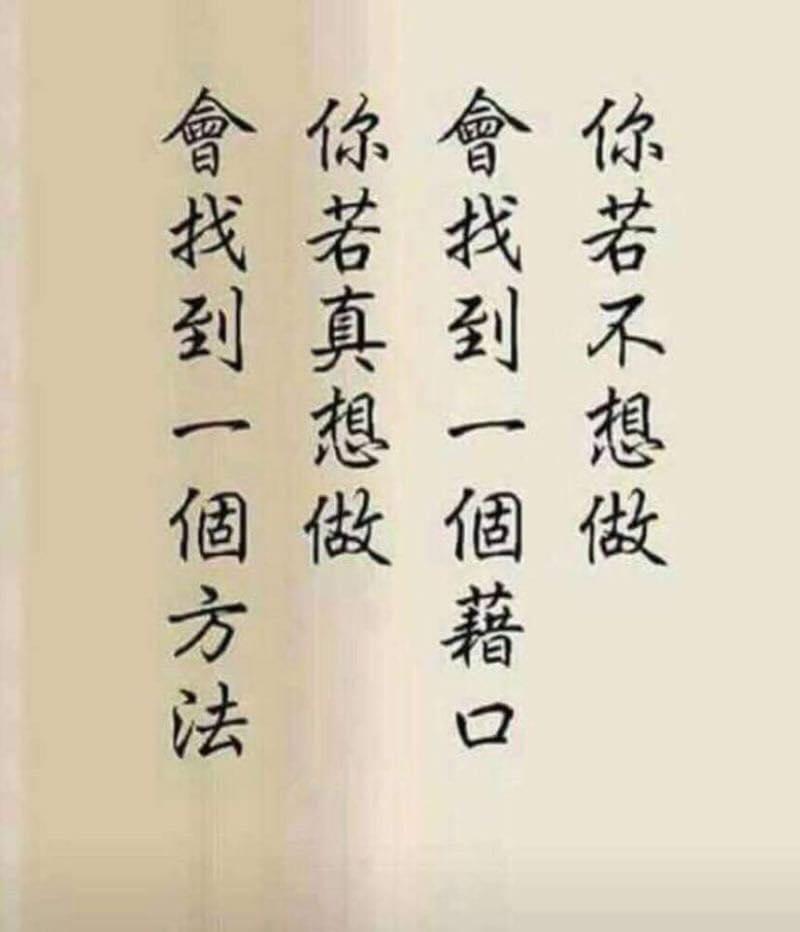 你若不想做
會找到一個藉口
你若真想做
會找到一個方法